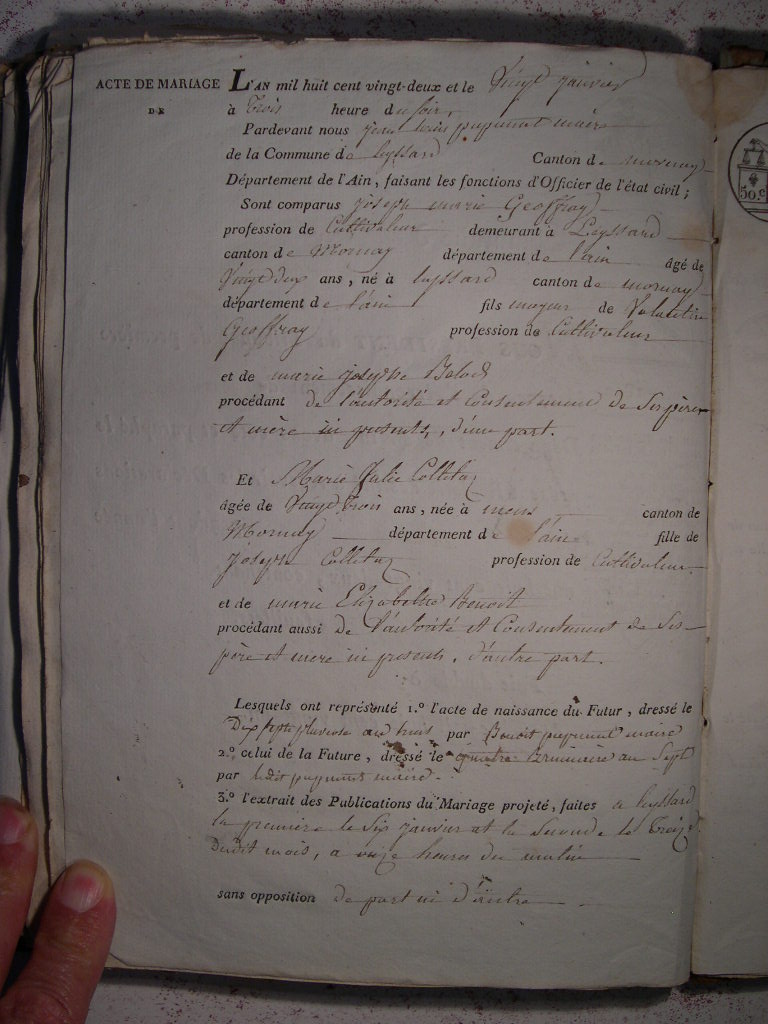 ACTE DE MARIAGE
DE
L'AN mil huit cent vingt-deux et le Vingt janvier
à Trois heure du soir,
Pardevant nous jean louis puyumet maire
de la Commune de leyssard Canton de mornay
Département de l'Ain, faisant les fonctions d'Officier de l'état civil;
Sont comparus joseph marie Geoffray
profession de Cultivateur demeurant à Leyssard
canton de Mornay département de l'ain âgé de
Vingt deux ans, né à leyssard canton de mornay
département de l'ain fils majeur de Valentin
Geoffray profession de Cultivateur
et de marie josephe
procédant de l'autorité et Consentement de Ses père
et mère ici présents, d'une part.
Et Marie Julie Colletaz
âgée de Vingt trois ans, née à canton de
Mornay département de l'ain fille de
joseph Colletaz profession de Cultivateur
et de marie Elizabethe Benoit
procédant aussi de l'autorité et Consentement de Ses
père et mere ici presents, d'autre part.
Lesquels ont représenté 1.º l'acte de naissance du Futur, dressé le
Dix sept pluviose an huit par Benoit puyumet maire
2.º celui de la Future, dressé le quatre Brumaire an Sept
par ledit puyumet maire
3.º l'extrait des Publications du Mariage projeté, faites a leyssard
la premiere le Six janvier et la Seconde le Treize
Dudit mois, a onze heures du matin
sans opposition de part ni d'autre
50.c